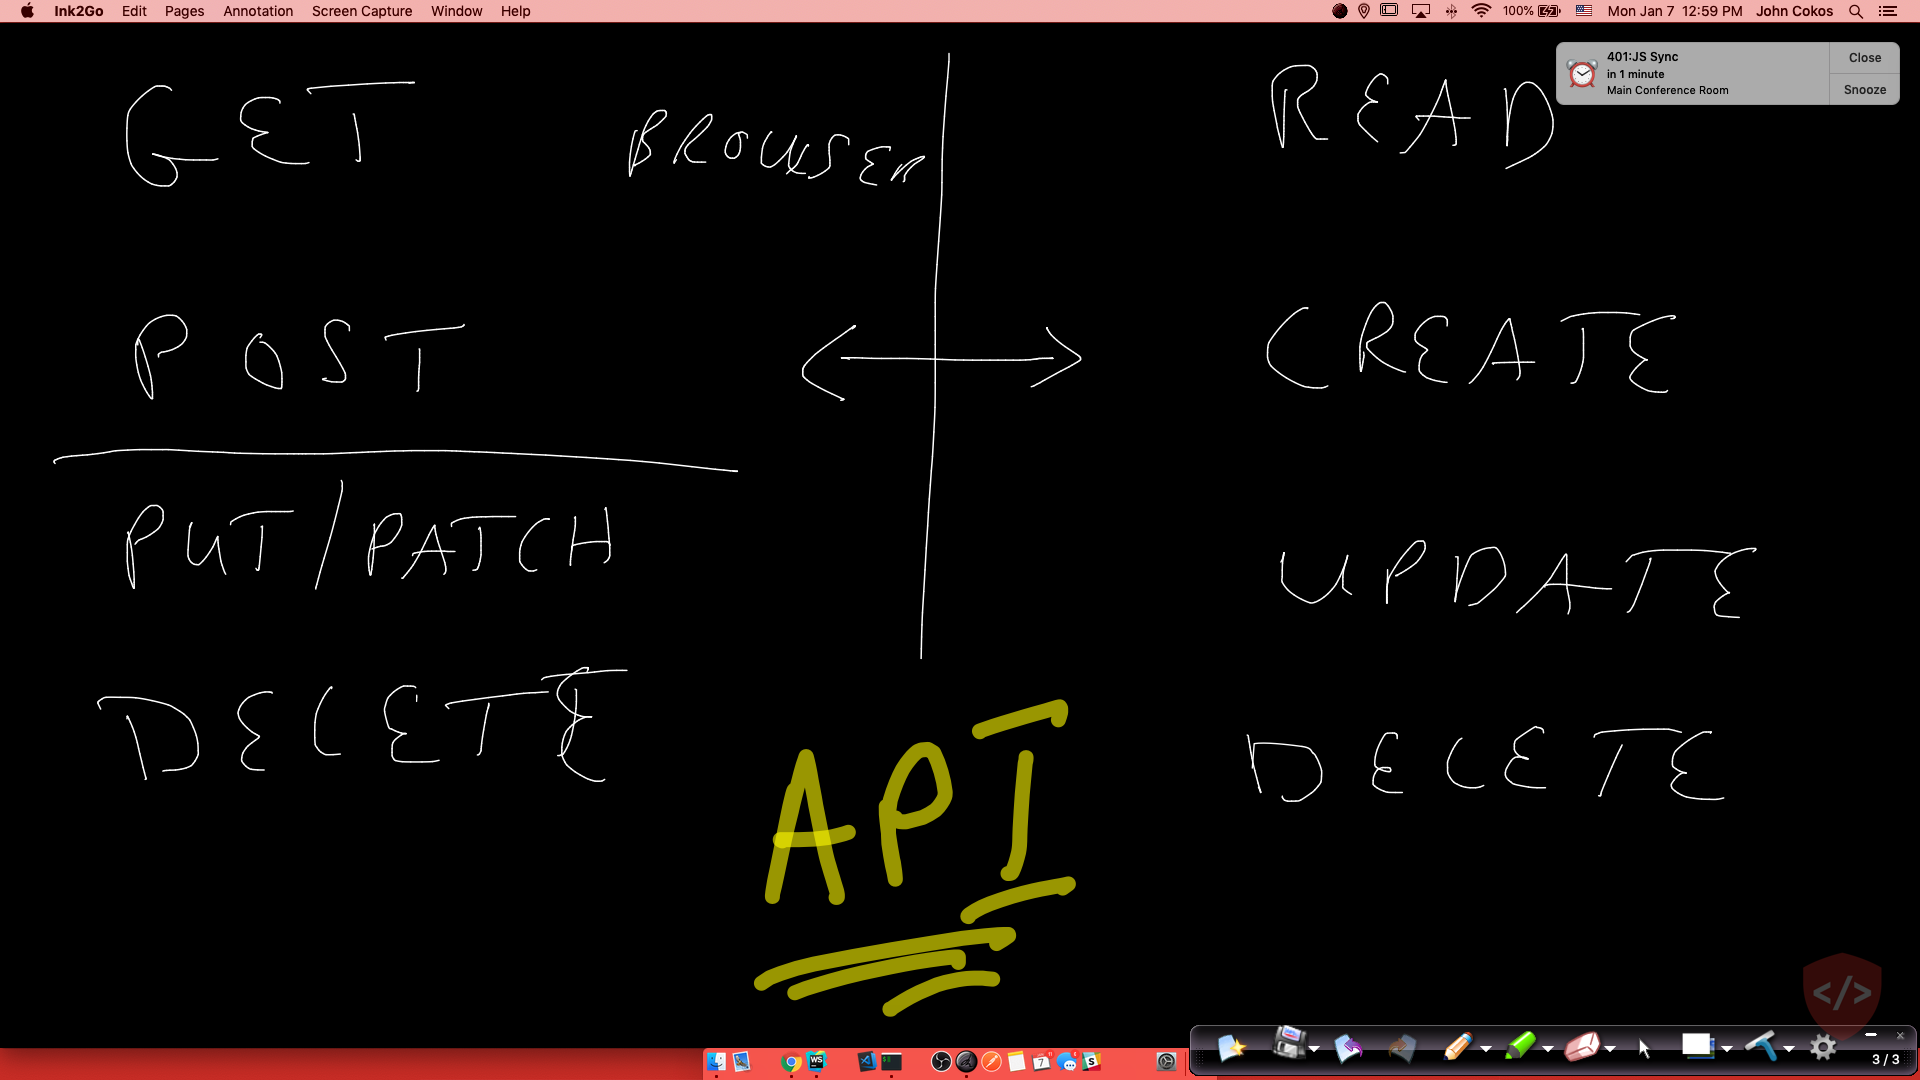 Ink2Go Edit Pages Annotation Screen Capture Window Help 100% Mon Jan 7 12:59 PM John Cokos
401:JS Sync
in 1 minute
Main Conference Room
Close
Snooze
GET BROWSER READ
POST CREATE
PUT/PATCH UPDATE
DELETE DELETE
API
</>
WS
7
3 / 3